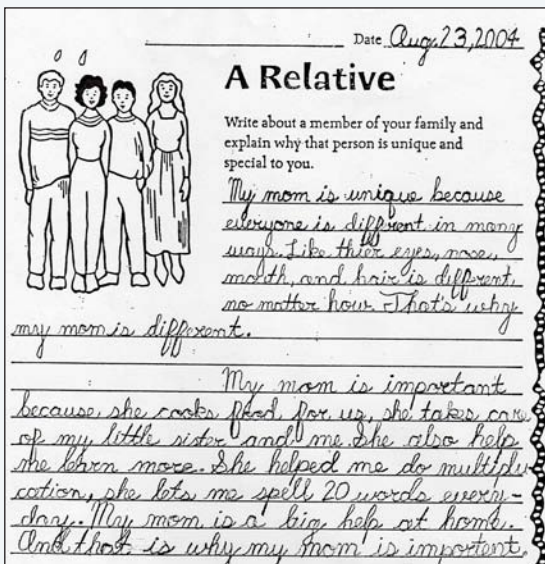 Date Aug. 23, 2004
A Relative
Write about a member of your family and
explain why that person is unique and
special to you.
My mom is unique because
everyone is different in many
ways. Like thier eyes, nose,
mouth, and hair is different,
no matter how. That's why
my mom is different.
My mom is important
because, she cooks food for us, she takes care
of my little sister and me. She also help
me learn more. She helped me do multipli-
cation, she lets me spell 20 words every-
day. My mom is a big help at home.
And that is why my mom is importent.